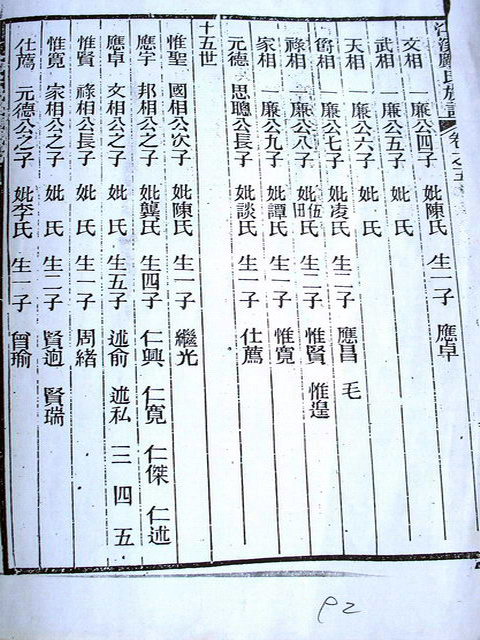 氏族譜 卷之五
文相 一廉公四子 妣陳氏 生一子 應卓
武相 一廉公五子 妣 氏
天相 一廉公六子 妣 氏
一廉公七子 妣凌氏 生二子 應昌 毛
祿相 一廉公八子 妣伍田氏 生二子 惟賢 惟遑
家相 一廉公九子 妣譚氏 生一子 惟寬
元德 思聰公長子 妣談氏 生一子 仕薦
十五世
惟聖 國相公次子 妣陳氏 生一子 繼光
應宇 邦相公之子 妣龔氏 生四子 仁興 仁寬 仁傑 仁述
應卓 文相公之子 妣 氏 生五子 述俞 述私 三 四 五
惟賢 祿相公長子 妣 氏 生一子 周緒
惟寬 家相公之子 妣 氏 生二子 賢迥 賢瑞
仕薦 元德公之子 妣李氏 生一子 曾瑜
92